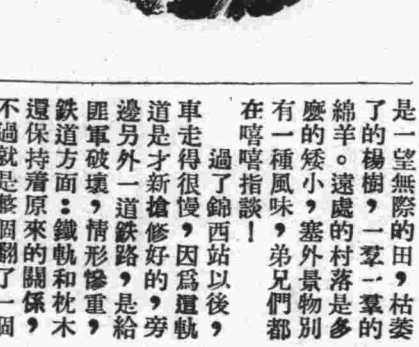 是一望無際的田，枯萎
了的楊樹，一羣一羣的
綿羊。遠處的村落是多
麽的矮小，塞外景物別
有一種風味，弟兄們都
在嘻嘻指談！
過了錦西站以後，
車走得很慢，因爲這軌
道是才新搶修好的，旁
邊另外一道鉄路，是給
匪軍破壞，情形慘重，
鉄道方面：鐵軌和枕木
還保持着原來的關係，
不過就是整個翻了一個